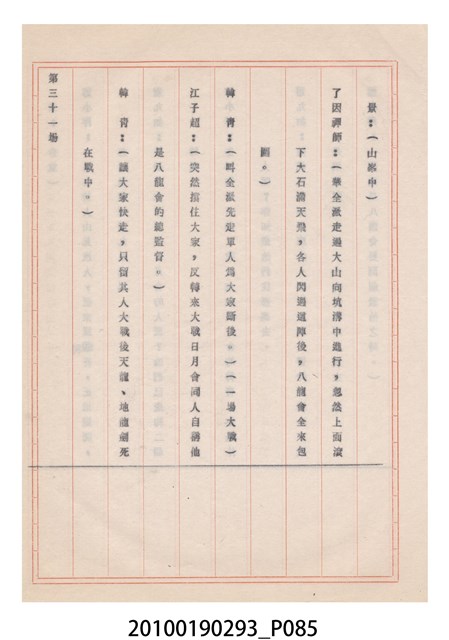 景：（山峯中）
了因禪師：（華全派走過大山向坑溝中進行，忽然上面滾
下大石滿天飛，各人閃過這陣後，八龍會全來包
圍。）
韓　青：（叫全派先走單人為大家斷後。）（一場大戰）
江子超：（突然擋住大家，反轉來大戰日月會同人自講他
是八龍會的總監督。）
韓　青：（讓大家快走，只留其人大戰後天龍、地龍劍死
在戰中。）
第三十一場
20100190293_P085